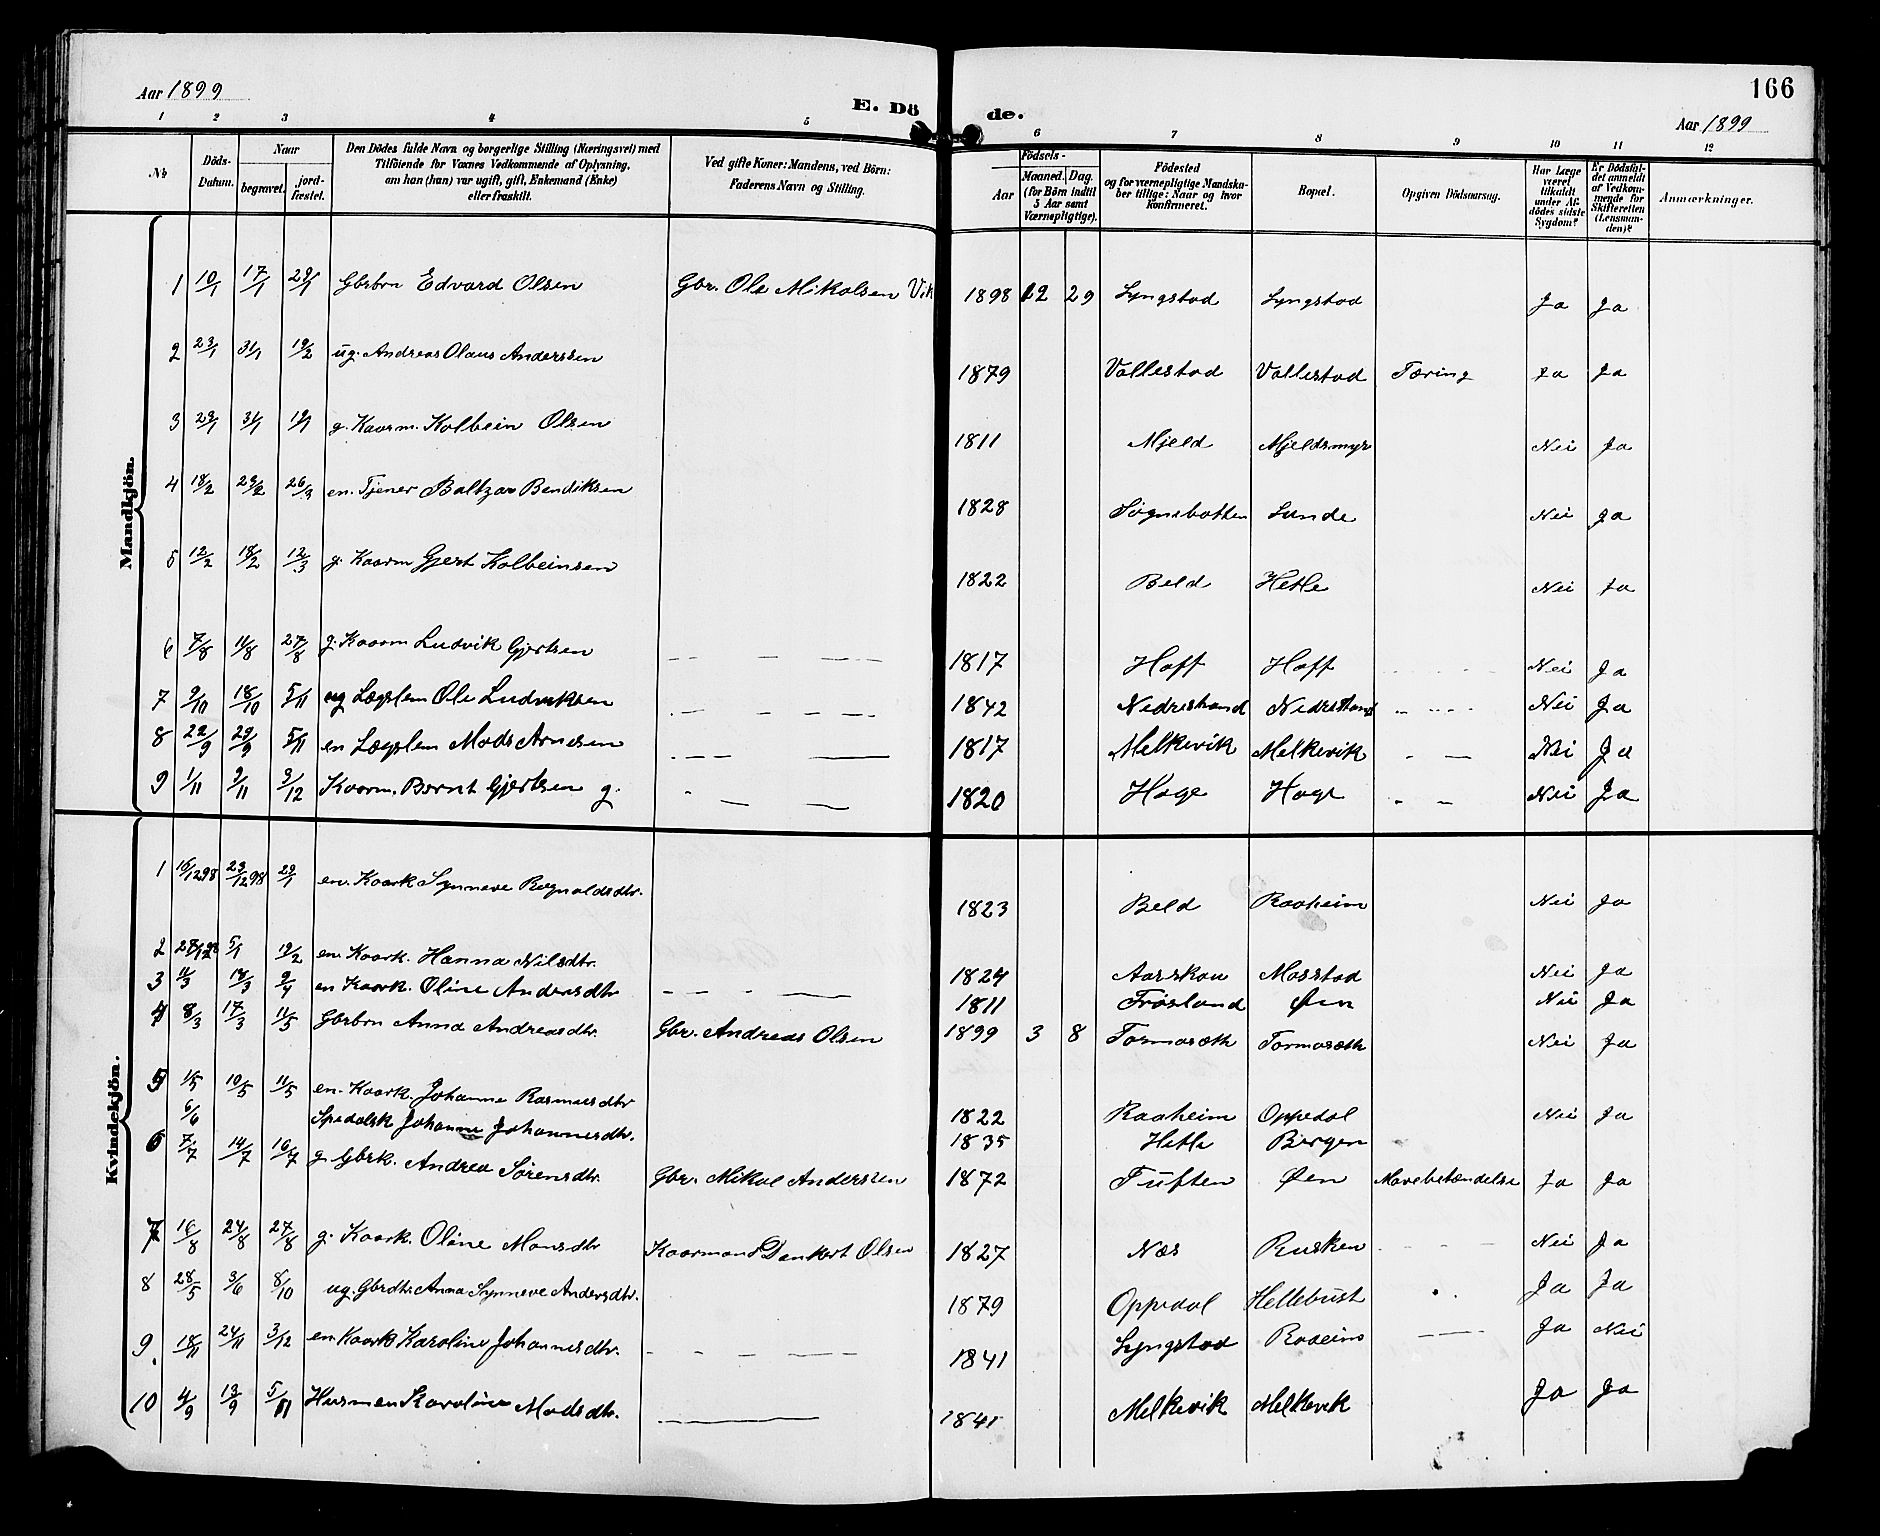 166
Aar 1899
E. Dö de.
Aar 1899
1 2 3 4 5 6 7 8 9 10 11 12
No
Döds-Datum.
Naar
begravet.
jord-fæstet.
Den Dödes fulde Navn og borgerlige Stilling (Næringsvei) med
Tilföiende for Voxnes Vedkommende af Oplysning,
om han (hun) var ugift, gift, Enkemand (Enke)
eller fraskilt.
Ved gifte Koner: Mandens, ved Börn:
Faderens Navn og Stilling.
Födsels-
Aar
Maaned. Dag.
(for Börn indtil
5 Aar samt
Værnepligtige).
Födested
og for værnepligtige Mandska-
ber tillige: Naar og hvor
konfirmeret.
Bopæl.
Opgiven Dödsaarsag.
Har Læge
været
tilkaldt
under Af-
dödes sidste
Sygdom?
Er Dödsfal-
det anmeldt
af Vedkom-
mende for
Skifteretten
(Lensman-
den)?
Anmærkninger.
Mandkjön.
1 10/1 17/1 29/1 Gbrbrn Edvard Olsen Gbr. Ole Mikalsen Vik 1898 12 29 Lyngstad Lyngstad Ja Ja
2 23/1 31/1 19/2 ug. Andreas Olaus Anderssen 1879 Vallestad Vallestad Tæring Ja Ja
3 29/1 31/1 g. Kaarm. Kolbein Olsen 1811 Mjeld Mjeldsmyr Nei Ja
4 18/2 23/2 26/3 en. Tjener Baltzar Bendiksen 1828 Sognebotten Lunde Nei Ja
5 12/2 18/2 12/3 g. Kaarm Gjert Kolbeinsen 1822 Beld Hetle Nei Ja
6 7/8 11/8 27/8 g. Kaarm Ludvik Gjertsen — — — 1817 Hoff Hoff Nei Ja
7 9/10 18/10 5/11 ug Lægslem Ole Ludviksen — — — 1842 Nedrestrand Nedrestrand Nei Ja
8 22/9 29/9 5/11 en Lægslem Mads Arnesen — — 1817 Melkevik Melkevik — Nei Ja
9 1/11 9/11 3/12 Kaarm. Bernt Gjertsen g. — — 1820 Hage Hage — Nei Ja
Kvindekjön.
1 16/12 98 23/12 98 29/1 en. Kaark Synneve Ragnaldsdtr. 1823 Beld Raaheim Nei Ja
2 28/12 98 5/1 19/2 en. Kaark. Hanna Nilsdtr. 1824 Aarskau Masstad Nei Ja
3 11/3 18/3 9/4 en Kaark. Oline Andersdtr — — — 1811 Frøsland Øen Nei Ja
4 8/3 17/3 11/5 Gbrbrn Anna Andreasdtr. Gbr. Andreas Olsen 1899 3 8 Tormaseth Tormaseth Nei Ja
5 1/5 10/5 11/5 en. Kaark. Johanne Rasmusdtr 1822 Raaheim Oppedal Nei Ja
6/6 Spedalsk Johanne Johannesdtr. 1835 Hetle Bergen
6 7/7 14/7 16/7 g. Gbrk. Andrea Sørensdtr. Gbr. Mikal Anderssen 1872 Tuften Øen Mavebetændelse Ja Ja
7 16/8 24/8 27/8 g. Kaark. Oline Monsdtr Kaarmand Dankert Olsen 1827 Næs Rusken Nei Ja
8 28/5 3/6 8/10 ug. Gbrdtr. Anna Synneve Andersdtr. 1879 Oppedal Hellebust Ja Ja
9. 18/11 24/11 3/12 en Kaark Karoline Johannesdtr. — — — 1841 Lyngstad — Ja Nei
10 4/9 13/9 5/11 Karoline Madsdtr. — 1841 Melkevik Melkevik Ja Ja